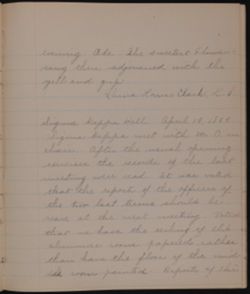 evening Ode. The sweetest Flower
sang then adjourned with the
yell and grip.
Clark
Sigma Kappa Hall. April 18,
Sigma Kappa met with
chair. After the usual opening
exercises the records of the last
meeting were read. It was voted
that the report of the officers of
the two last terms should be
read at the next meeting. Voted
that we have the ceiling of the
room papered rather
than have the floor of the
room painted. Report of